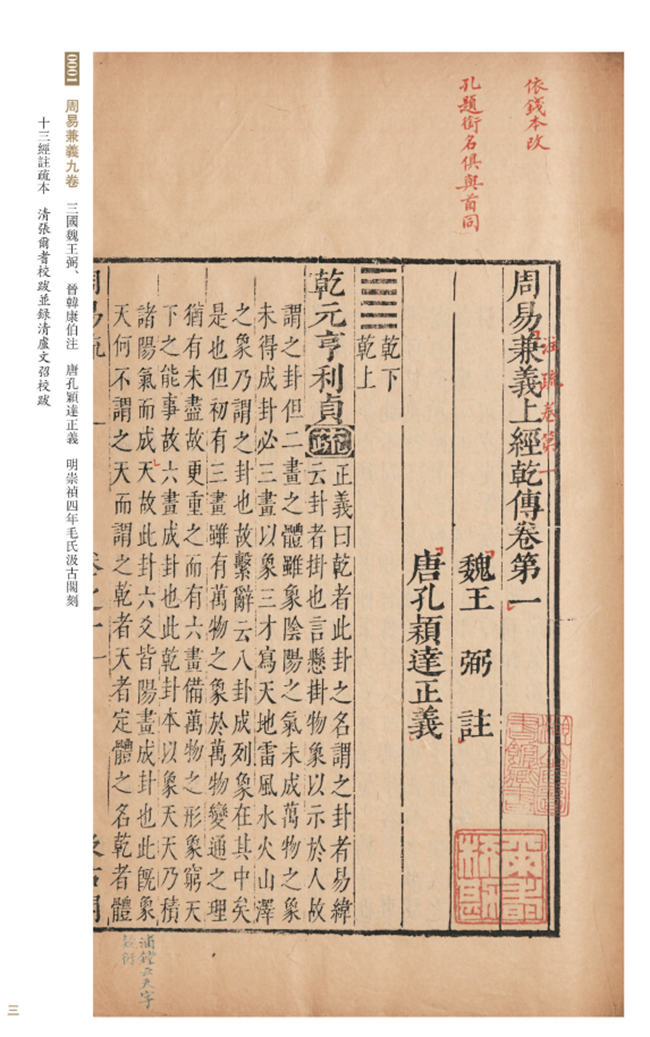 依錢本改
孔題銜名俱與首同
周易兼義上經乾傳卷第一
注疏卷第一
魏王 弼 註
唐孔穎達正義
乾下
乾上
乾元亨利貞疏正義曰乾者此卦之名謂之卦者易緯
云卦者掛也言懸掛物象以示於人故
謂之卦但二畫之體雖象陰陽之氣未成萬物之象
未得成卦必三畫以象三才寫天地雷風水火山澤
之象乃謂之卦也故繫辭云八卦成列象在其中矣
是也但初有三畫雖有萬物之象於萬物變通之理
猶有未盡故更重之而有六畫備萬物之形象窮天
下之能事故六畫成卦也此乾卦本以象天天乃積
諸陽氣而成天故此卦六爻皆陽畫成卦也此旣象
天何不謂之天而謂之乾者天者定體之名乾者體
浦鏜云天字
0001 周易兼義九卷 三國魏王弼、晉韓康伯注 唐孔穎達正義 明崇禎四年毛氏汲古閣刻
十三經註疏本 清張爾耆校跋並録清盧文弨校跋
三